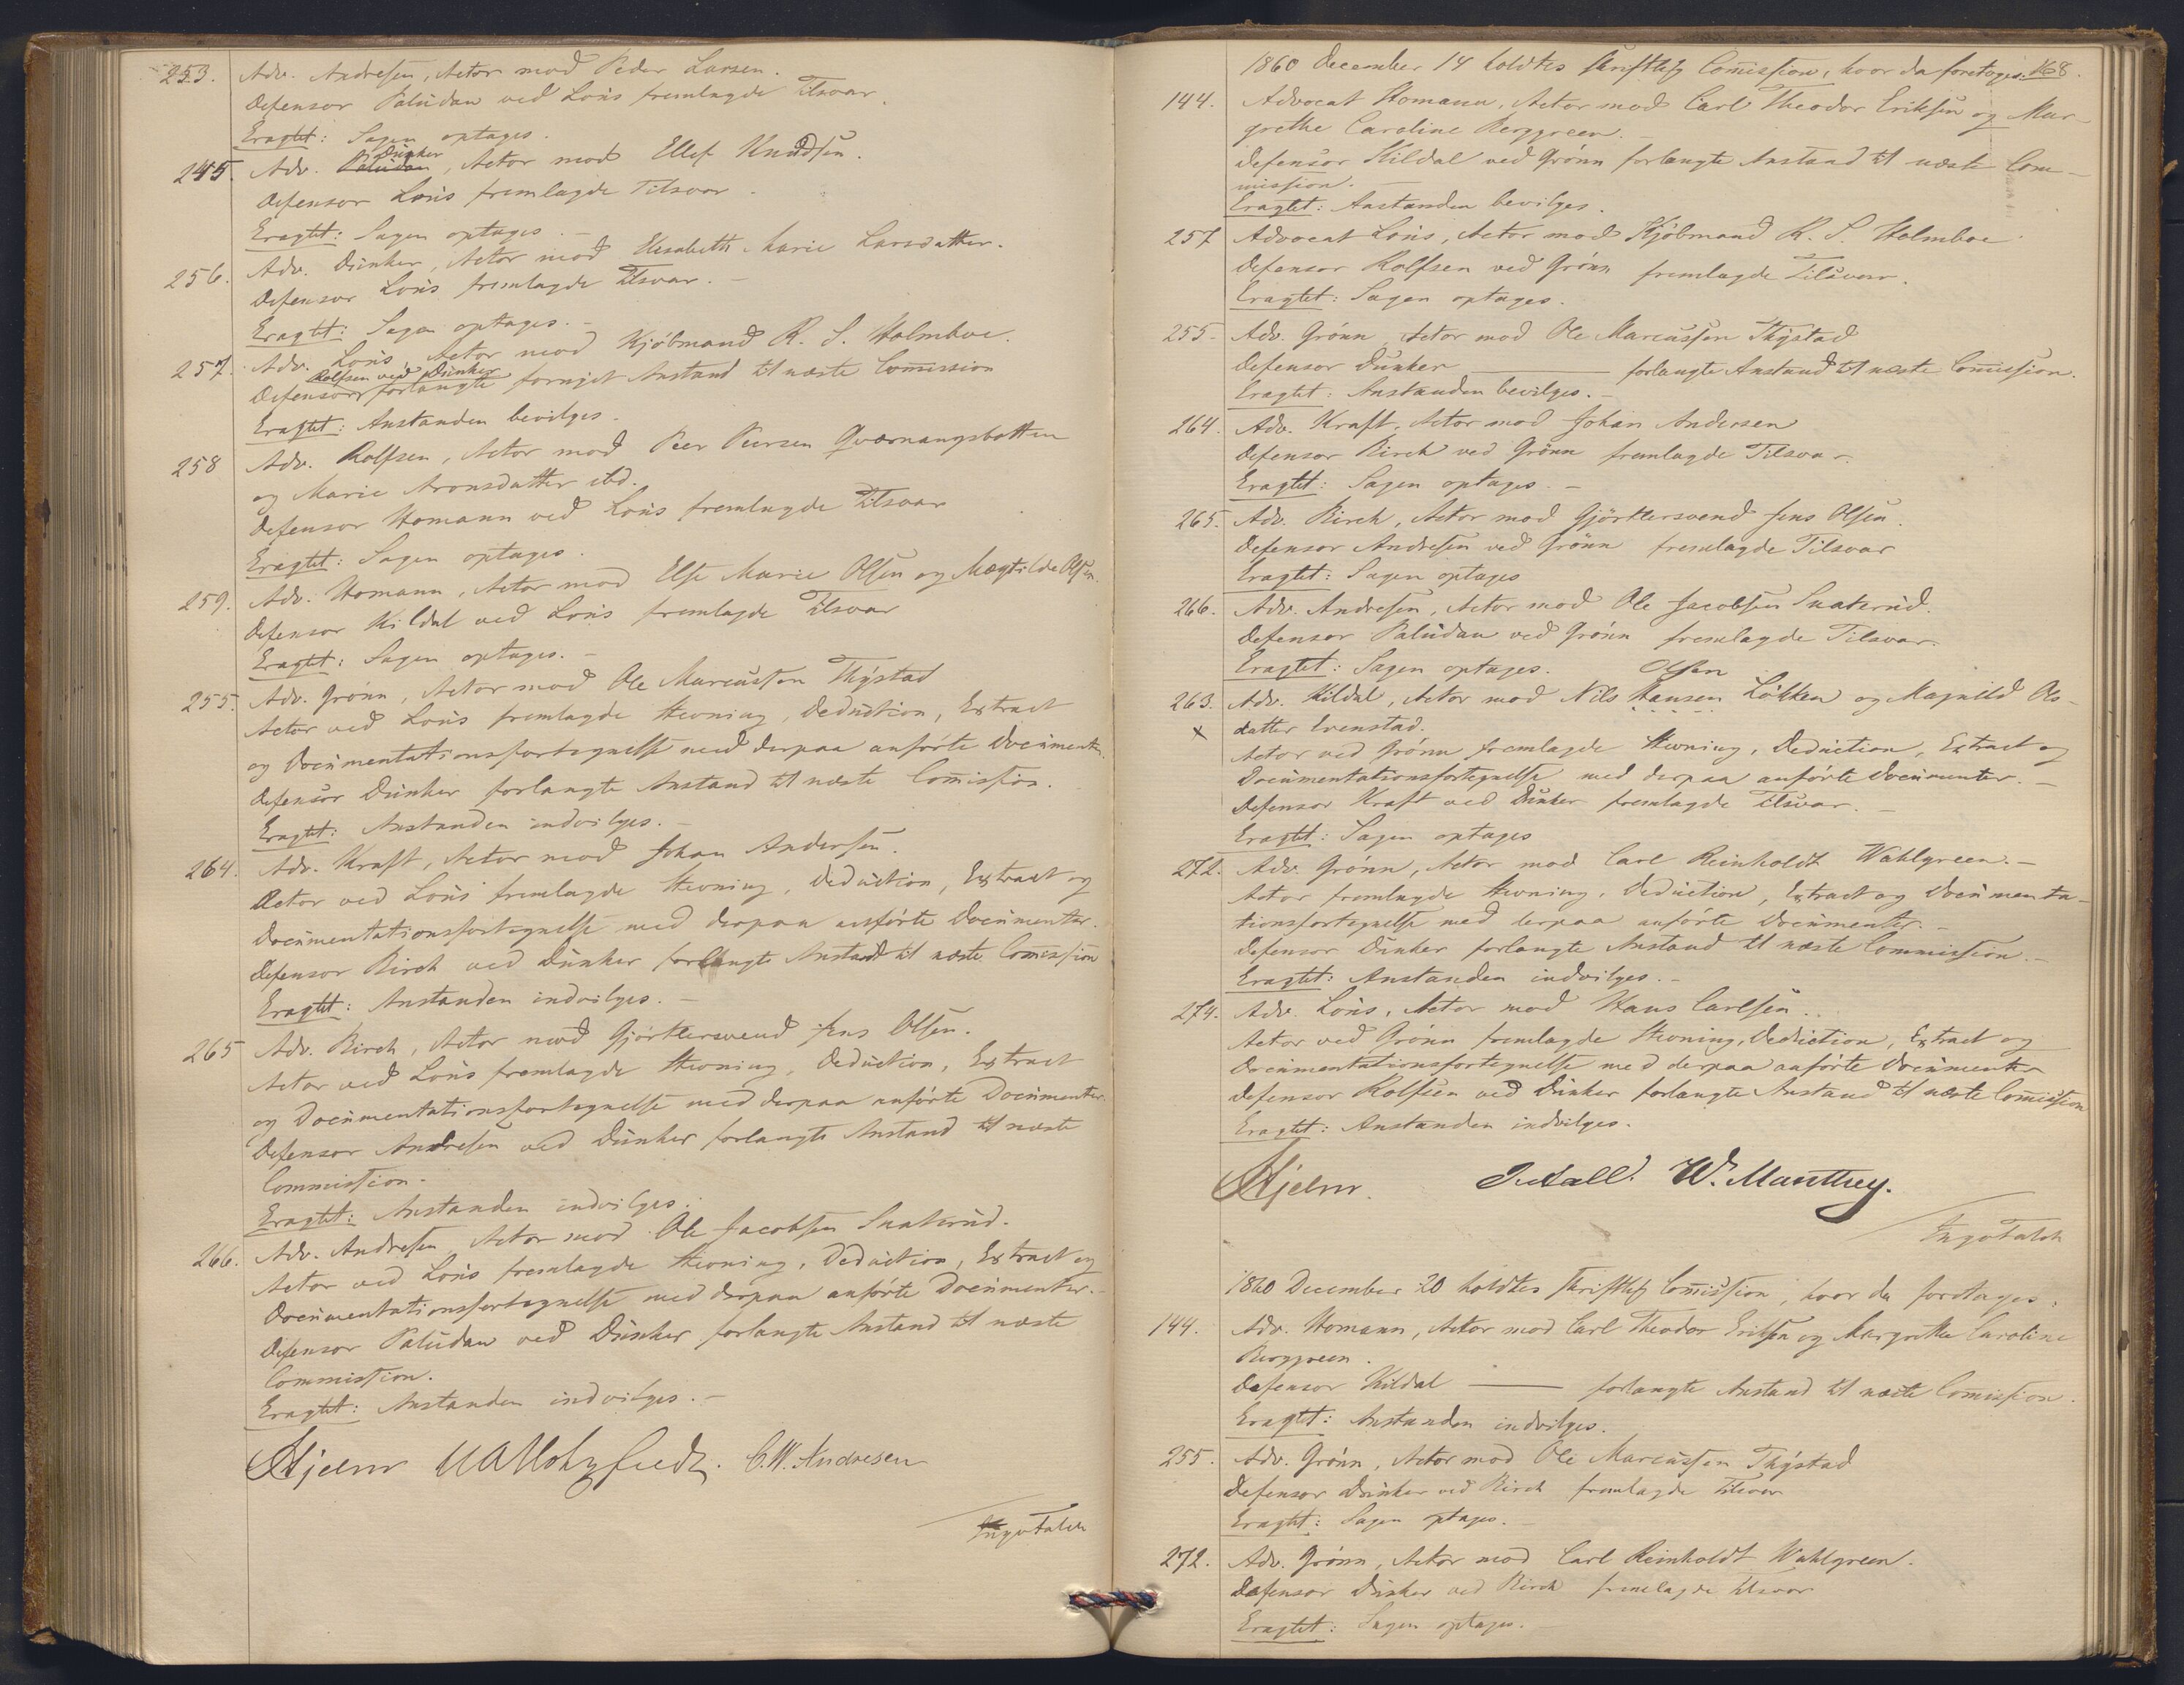 253. Adv. Andresen, Actor mod Peder Larsen.
Defensor Paludan ved Lous fremlagde Tilsvar.
Eragtet: Sagen optages.
245. Adv. Paludan Dunker, Actor mod Ellef Knudsen.
Defensor Lous fremlagde Tilsvar.
Eragtet: Sagen optages. –
256. Adv. Dunker, Actor mod Elisabeth Marie Larsdatter.
Defensor Lous fremlagde Tilsvar. –
Eragtet: Sagen optages. –
257. Adv. Lous, Actor mod Kjøbmand R. S. Holmboe.
Defensor Rolfsen ved Dunker forlangte fornyet Anstand til næste Commission
Eragtet: Anstanden bevilges.
258 Adv. Rolfsen, Actor mod Peer Peersen Qvænangsbotten
og Marie Aronsdatter ibd.
Defensor Homann ved Lous fremlagde Tilsvar
Eragtet: Sagen optages.
259. Adv. Homann, Actor mod Else Marie Olsen og Mægtilde Olsen.
Defensor Kildal ved Lous fremlagde Tilsvar
Eragtet: Sagen optages. –
255. Adv. Grønn, Actor mod Ole Marcussen Thystad
Actor ved Lous fremlagde Stevning, Deduction, Extract
og Documentationsfortegnelse med derpaa anførte Documenter.
Defensor Dunker forlangte Anstand til næste Commission.
Eragtet: Anstanden indvilges. –
264. Adv. Kraft, Actor mod Johan Andersen.
Actor ved Lous fremlagde Stevning, Deduction, Extract og
Documentationsfortegnelse med derpaa anførte Documenter.
Defensor Birch ved Dunker forlangte Anstand til næste Commission
Eragtet: Anstanden indvilges. –
265 Adv. Birch, Actor mod Gjørtlersvend Jens Olsen.
Actor ved Lous fremlagde Stevning, Deduction, Extract
og Documentationsfortegnelse med derpaa anførte Documenter.
Defensor Andresen ved Dunker forlangte Anstand til næste
Commission.
Eragtet: Anstanden indvilges.
266. Adv. Andresen, Actor mod Ole Jacobsen Snaterud.
Actor ved Lous fremlagde Stevning, Deduction, Extract og
Documentationsfortegnelse med derpaa anførte Documenter.
Defensor Paludan ved Dunker forlangte Anstand til næste
Commission.
Eragtet: Anstanden indvilges. –
Hjelm C. W. Andresen
1860 December 14 holdtes skriftlig Commission, hvor da foretoges. 168.
144. Advocat Homann, Actor mod Carl Theodor Eriksen og Mar-
grethe Caroline Berggreen. –
Defensor Kildal ved Grønn forlangte Anstand til næste Com-
mission. –
Eragtet: Anstanden bevilges.
257 Advocat Lous, Actor mod Kjøbmand R. S. Holmboe
Defensor Rolfsen ved Grønn fremlagde Tilsvar.
Eragtet: Sagen optages.
255 – Adv. Grønn, Actor mod Ole Marcussen Thystad
Defensor Dunker ——— forlangte Anstand til næste Commission.
Eragtet: Anstanden bevilges. –
264. Adv. Kraft, Actor mod Johan Andersen
Defensor Birch ved Grønn fremlagde Tilsvar.
Eragtet: Sagen optages. –
265. Adv. Birch, Actor mod Gjørtlersvend Jens Olsen.
Defensor Andresen ved Grønn fremlagde Tilsvar
Eragtet: Sagen optages
266. Adv. Andresen, Actor mod Ole Jacobsen Snaterud.
Defensor Paludan ved Grønn fremlagde Tilsvar.
Eragtet: Sagen optages. Olsen
263. Adv. Kildal, Actor mod Nils Hansen Løkken og Magnild Ols-
x datter Evenstad.
Actor ved Grønn fremlagde Stevning, Deduction, Extract og
Documentationsfortegnelse med derpaa anførte Documenter. –
Defensor Kraft ved Dunker fremlagde Tilsvar. –
Eragtet: Sagen optages
272. Adv. Grønn, Actor mod Carl Reinholdt Wahlgreen. –
Actor fremlagde Stevning, Deduction, Extract og Documenta-
tionsfortegnelse med derpaa anførte Documenter. –
Defensor Dunker forlangte Anstand til næste Commission. –
Eragtet: Anstanden indvilges. –
274. Adv. Lous, Actor mod Hans Carlsen.
Actor ved Grønn fremlagde Stevning, Deduction, Extract og
Documentationsfortegnelse med derpaa anførte Documenter
Defensor Rolfsen ved Dunker forlangte Anstand til næste Commission
Eragtet: Anstanden indvilges.
Hjelm. W. Manthey.
1860 December 20 holdtes skriftlig Commission, hvor da foretoges:
144. Adv. Homann, Actor mod Carl Theodor Eriksen og Margrethe Caroline
Berggreen.
Defensor Kildal ——— forlangte Anstand til næste Commission.
Eragtet: Anstanden indvilges.
255. Adv. Grønn, Actor mod Ole Marcussen Thystad
Defensor Dunker ved Birch fremlagde Tilsvar
Eragtet: Sagen optages. –
272. Adv. Grønn, Actor mod Carl Reinholdt Wahlgreen.
Defensor Dunker ved Birch fremlagde Tilsvar
Eragtet: Sagen optages. –